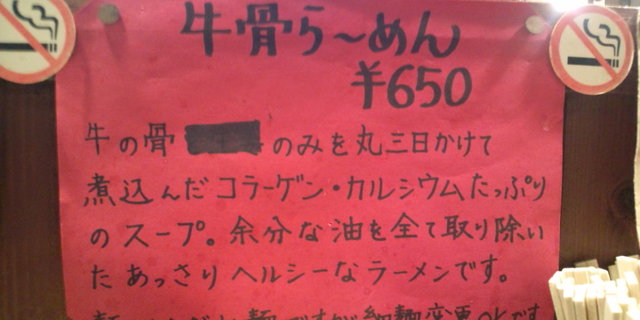 牛骨ら～めん
¥650
牛の骨 のみを丸三日かけて
煮込んだコラーゲン・カルシウムたっぷり
のスープ。余分な油を全て取り除い
たあっさりヘルシーなラーメンです。
麺 ですが細麺変更OKです